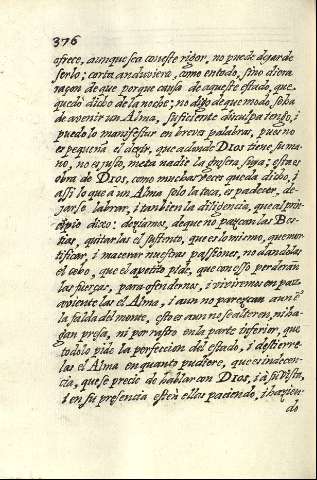 376
ofrece, aunque sea con este rigor, no puede dejar de
serlo; corta anduviera, como en todo, si no diera
razon de que por que causa do aqueste estado, que
quedo dicho de la noche; no digo de que modo, se ha
de avenir un Alma, suficiente disculpa tengo, i
puedolo manifestar en breves palabras, pues no
es pequeña el decir, que adonde DIOS tiene su ma-
no, no es justo, meta nadie la grosera suya; esta es
obra de DIOS, como muchas veces queda dicho, i
assi lo que a un Alma solo la toca, es padecer, de-
jarse labrar, i tanbien la diligencia, que al prin-
cipio dixe: deziamos, de que no pazcan las Bes-
tias, quitarlas el sustento, que es lo mismo, que mor-
tificar, i macerar nuestras passiones, no dandolas
el cebo, que el apetito pide, que con esso perderan
las fuerças, para ofendernos, i viviremos en paz,
avientelas el Alma, i aun no parezcan aun en
la falda del monte, esto es aun no se alteren, ni ha-
gan presa, ni por rastro en la parte inferior, que
todo lo pide la perfeccion del estado, i destierre-
las el Alma en quanto pudiere, que es indecen-
cia, que se precie de hablar con DIOS, i à su vista,
i en su presencia estèn ellas paciendo, i hazien-
do